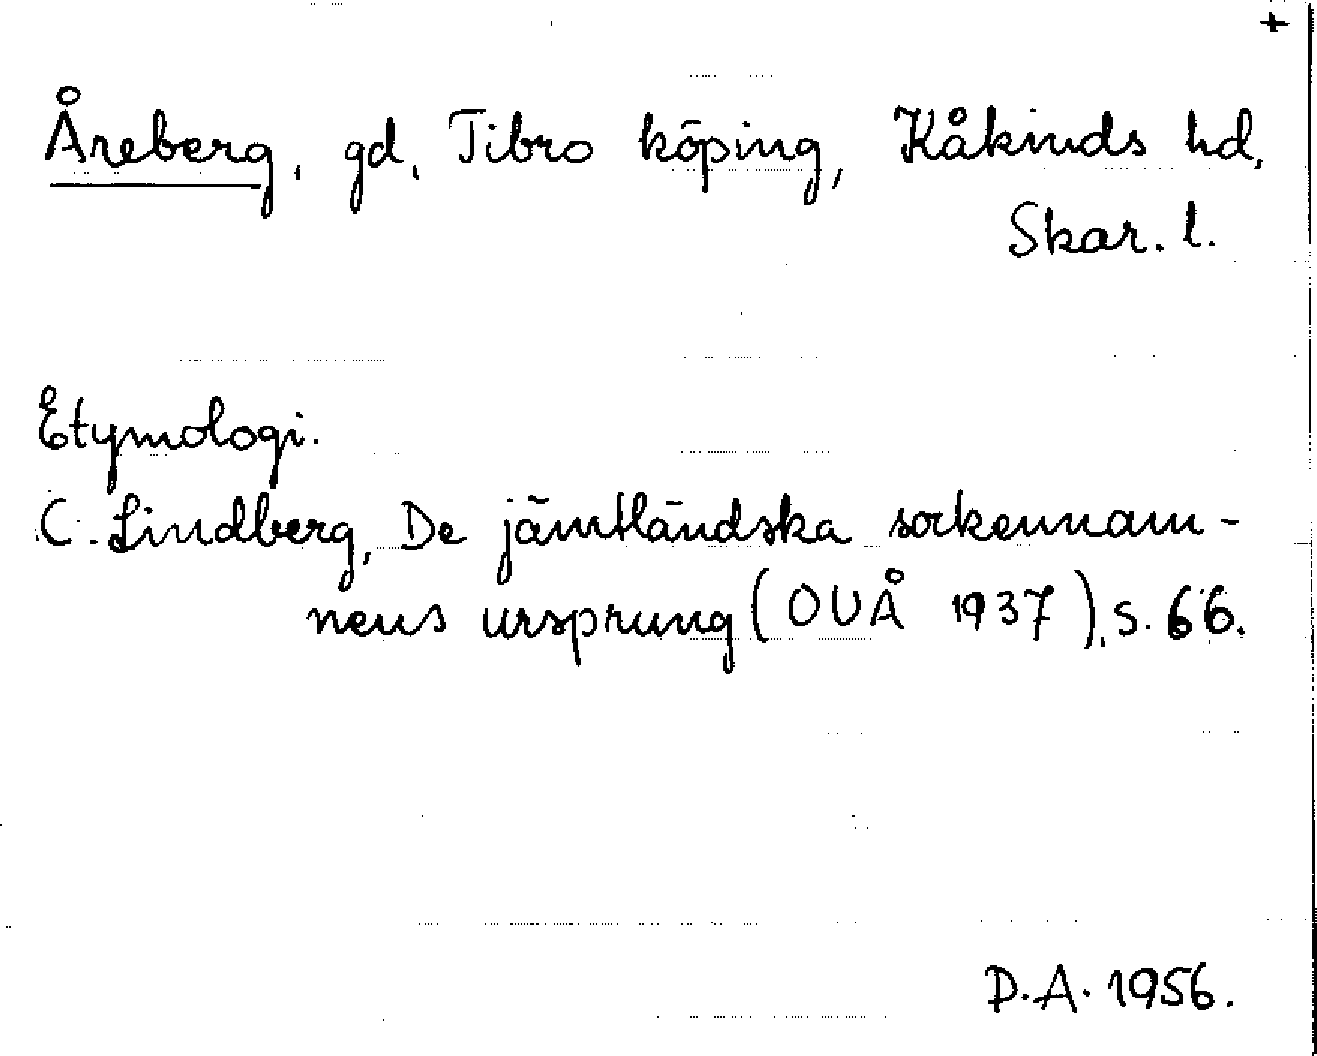 +
Åreberg, gd, Tibro köping, Kåkinds hd,
Skar. l.
Etymologi.
C. Lindberg, De jämtländska sockennam-
nens ursprung (OUÅ 1937), s. 66.
D.A. 1956.